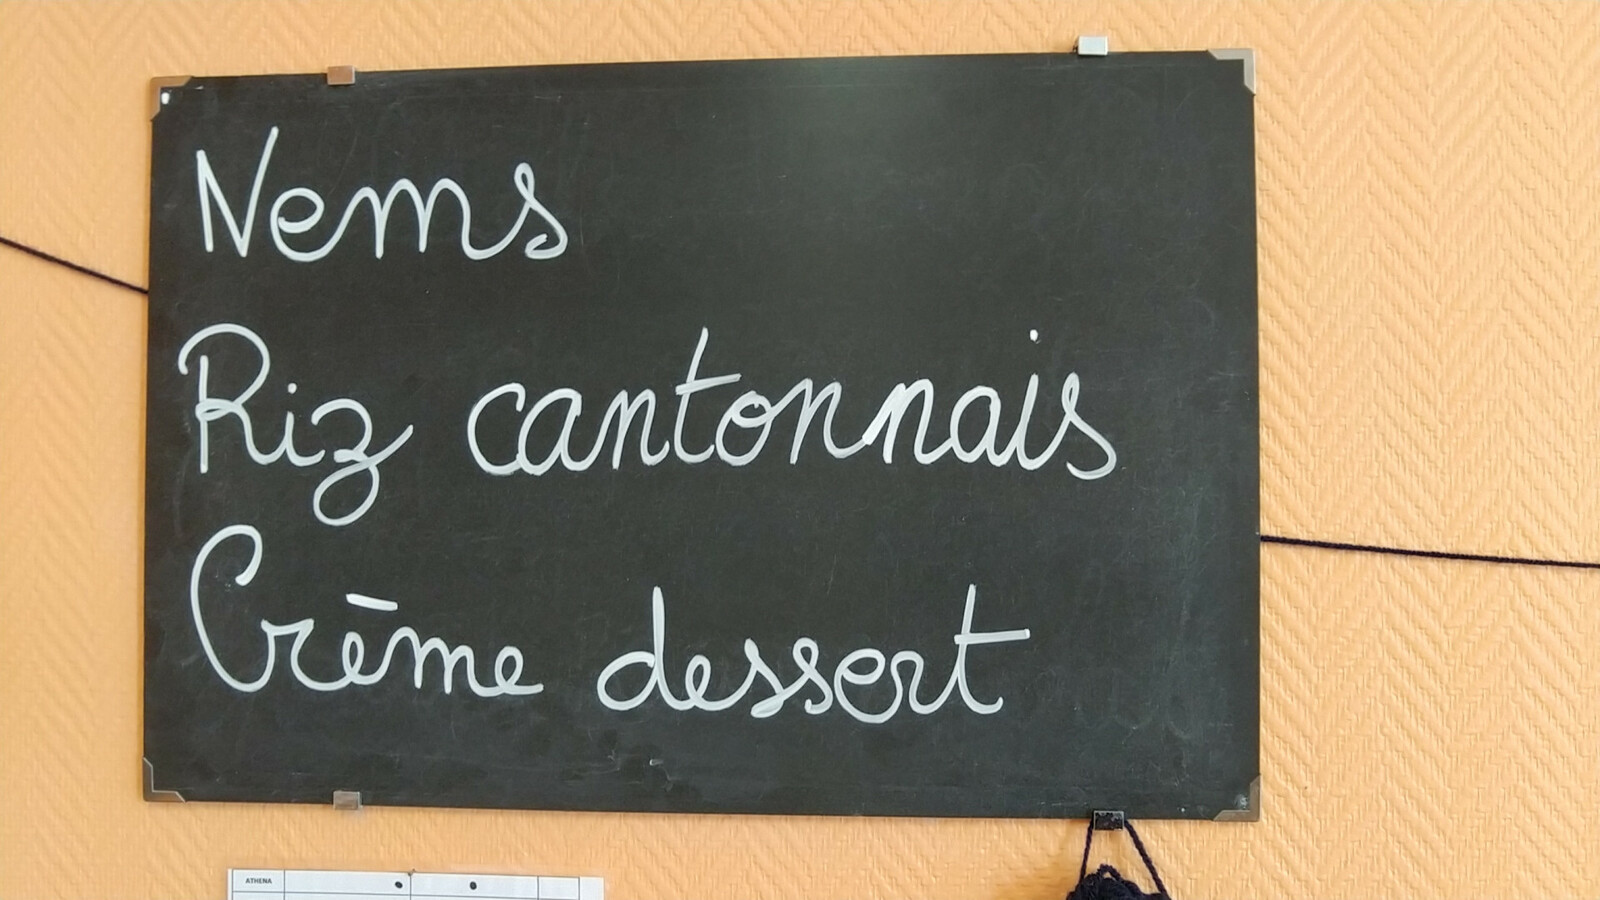 Nems
Riz cantonnais
Crème dessert
ATHENA